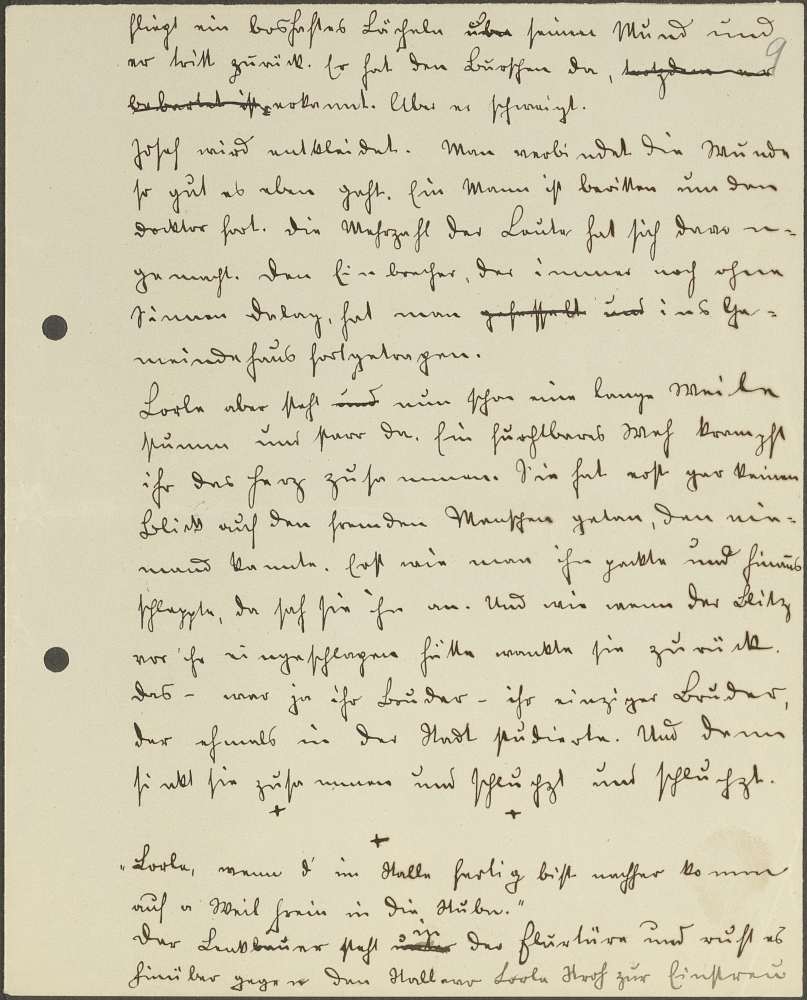 9
fliegt ein boshaftes Lächeln über seinen Mund und
er tritt zurück. Er hat den Burschen da, trotzdem er
bebartet ist, erkannt. Aber er schweigt.
Josef wird entkleidet. Man verbindet die Wunde
so gut es eben geht. Ein Mann ist beritten um den
Docktor fort. Die Mehrzahl der Leute hat sich davon-
gemacht. Den Einbrecher, der immer noch ohne
Sinnen dalag, hat man gefesselt und ins Ge-
meindehaus fortgetragen.
Lorle aber steht und nun schon eine lange Weile
stumm und starr da. Ein furchtbares Weh krampft
ihr das Herz zusammen. Sie hat erst gar keinen
Blick auf den fremden Menschen getan, den nie-
mand kannte. Erst wie man ihn packte und hinaus
schleppte, da sah sie ihn an. Und wie wenn der Blitz
vor ihr eingeschlagen hätte wankte sie zurück.
Das - war ja ihr Bruder - ihr einziger Bruder,
der ehmals in der Stadt studierte. Und dann
sinkt sie zusammen und schluchzt und schluchzt.
+ +
+
"Lorle, wenn d' im Stalle fertig bist nachher komm
auf a Weil herein in die Stube."
Der Lenkbauer steht in der Flurtüre und ruft es
hinüber gegen den Stall wo Lorle Stroh zur Einstreu